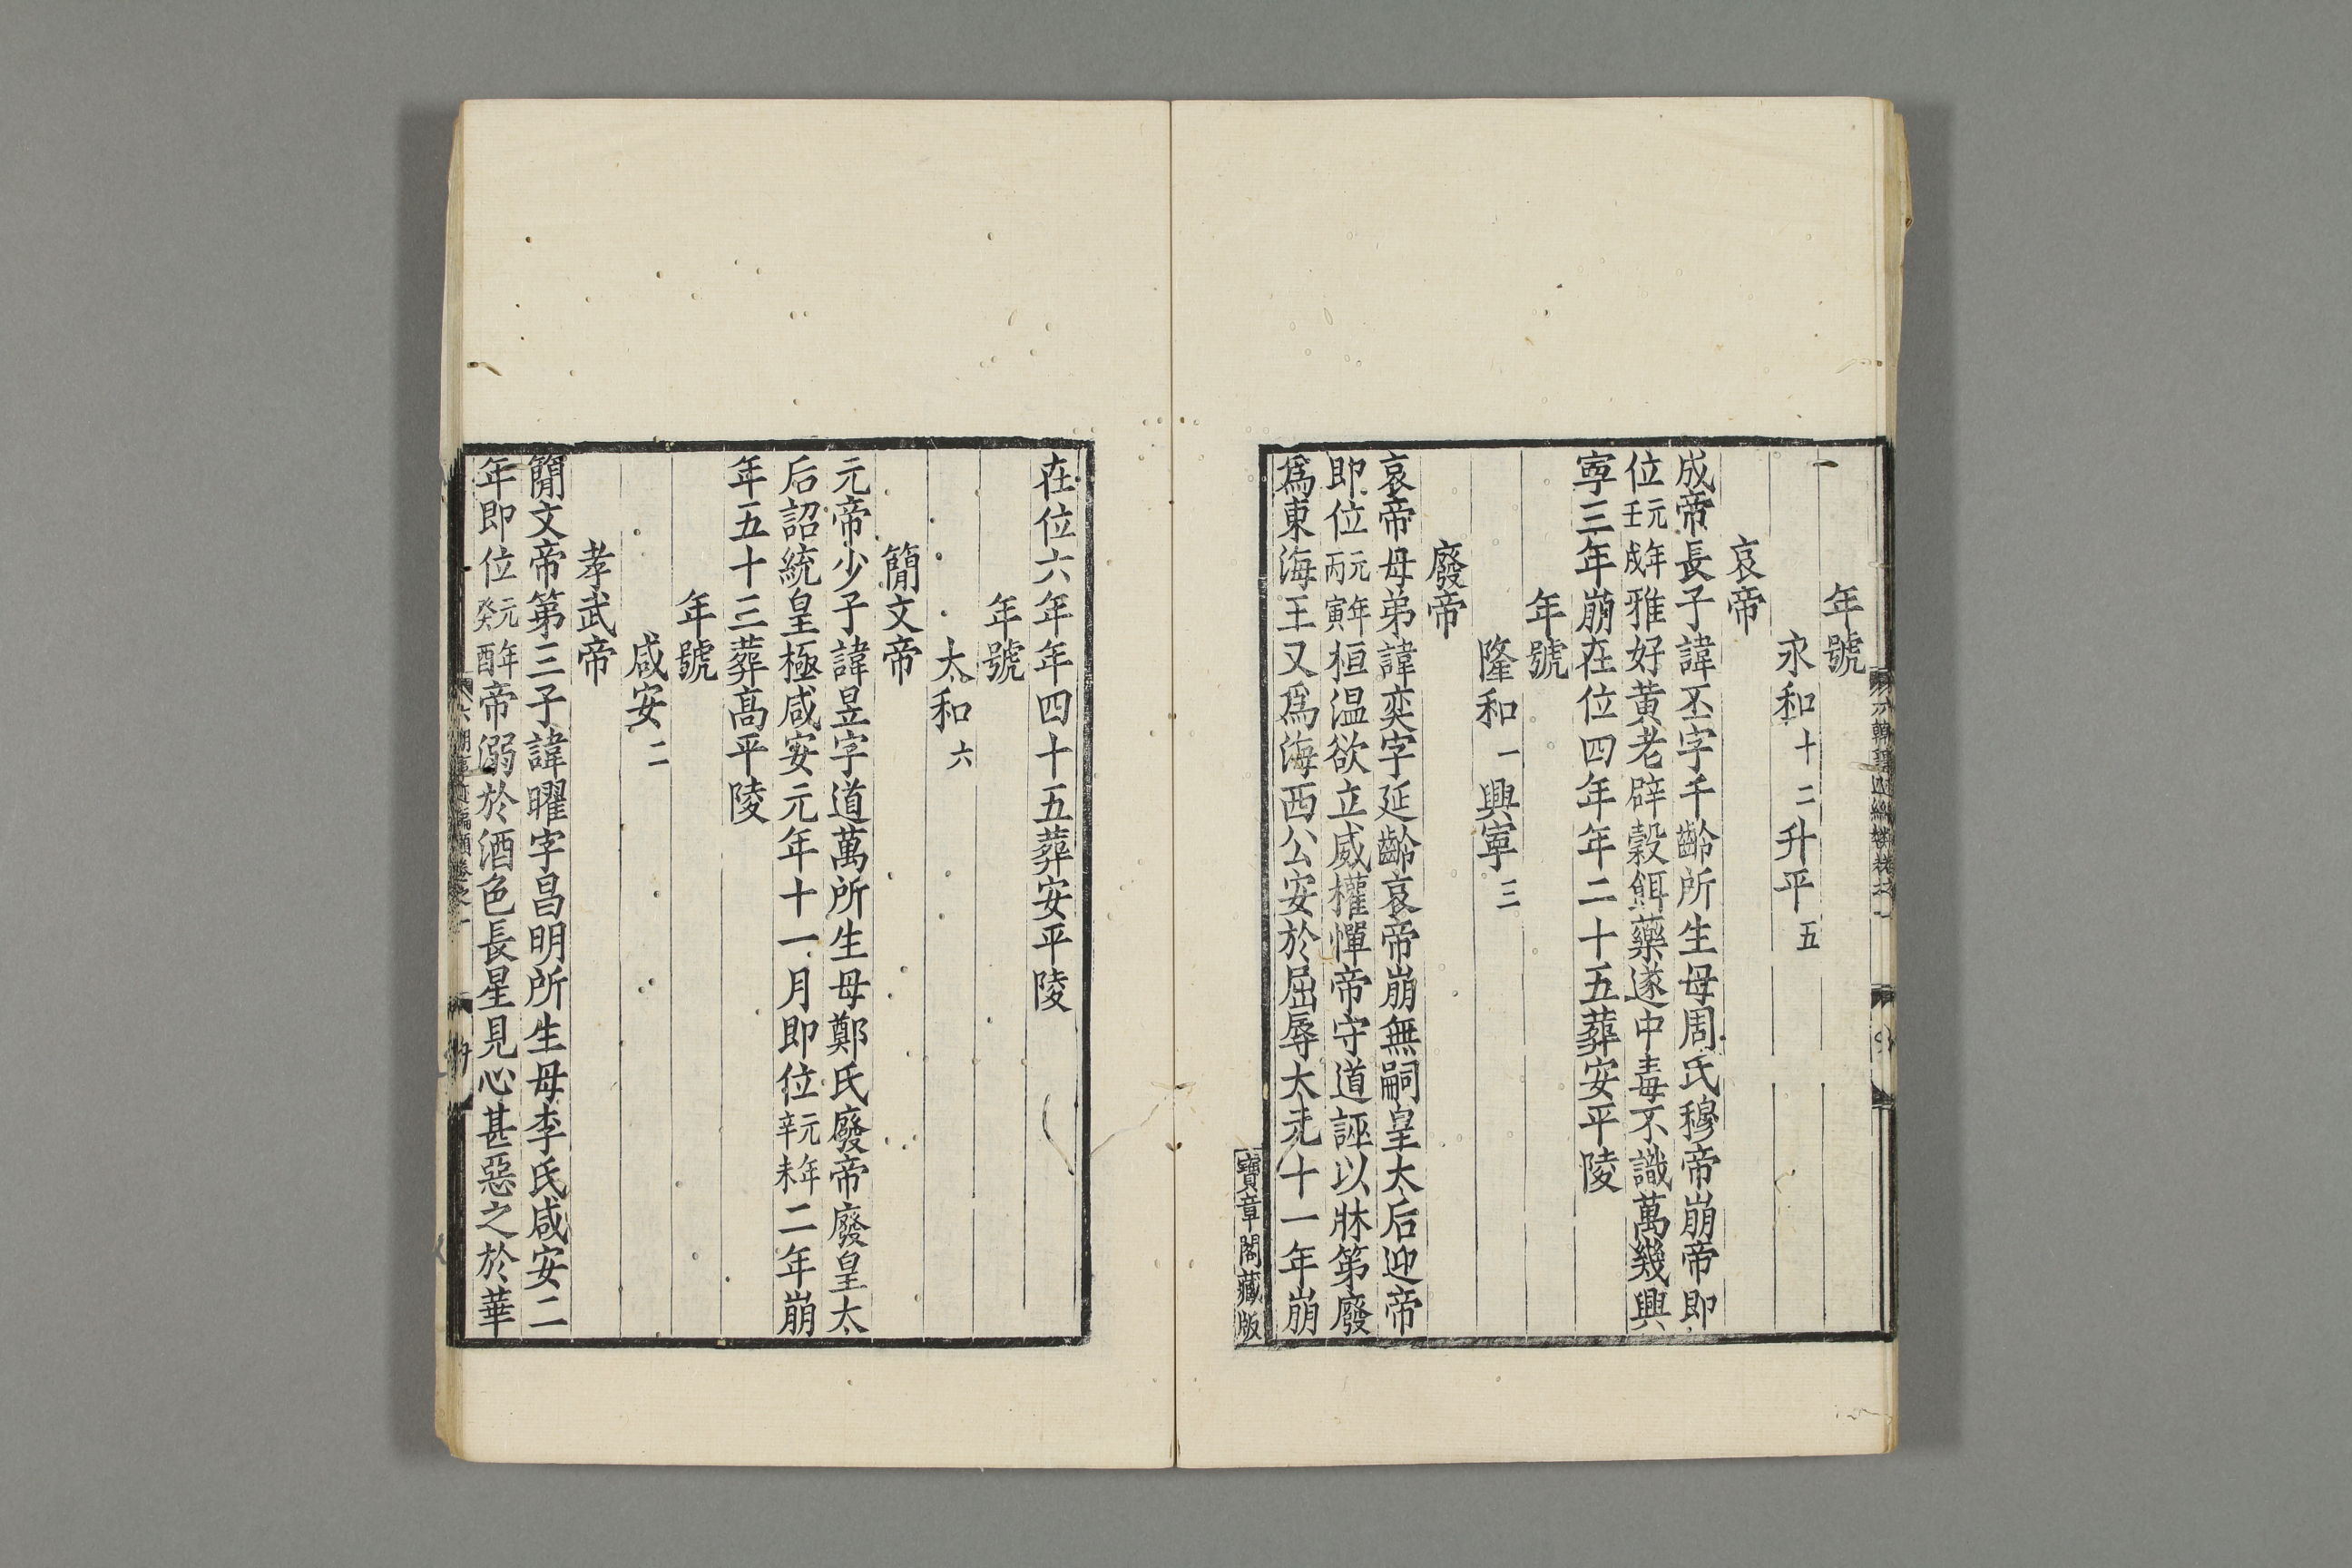 年號
永和十二升平五
哀帝
成帝長子諱丕字千齡所生母周氏穆帝崩帝即
位元年壬戌雅好黄老辟穀餌藥遂中毒不識萬幾興
寧三年崩在位四年年二十五葬安平陵
年號
隆和一興寧三
廢帝
哀帝母弟諱奕字延齡哀帝崩無嗣皇太后迎帝
即位元年丙寅桓温欲立威權憚帝守道誣以牀第廢
爲東海王又爲海西公安於屈辱太元十一年崩
寶章閣藏版
在位六年年四十五葬安平陵
年號
太和六
簡文帝
元帝少子諱昱字道萬所生母鄭氏廢帝廢皇太
后詔統皇極咸安元年十一月即位元年辛未二年崩
年五十三葬高平陵
年號
咸安二
孝武帝
簡文帝第三子諱曜字昌明所生母李氏咸安二
年即位元年癸酉帝溺於酒色長星見心甚惡之於華